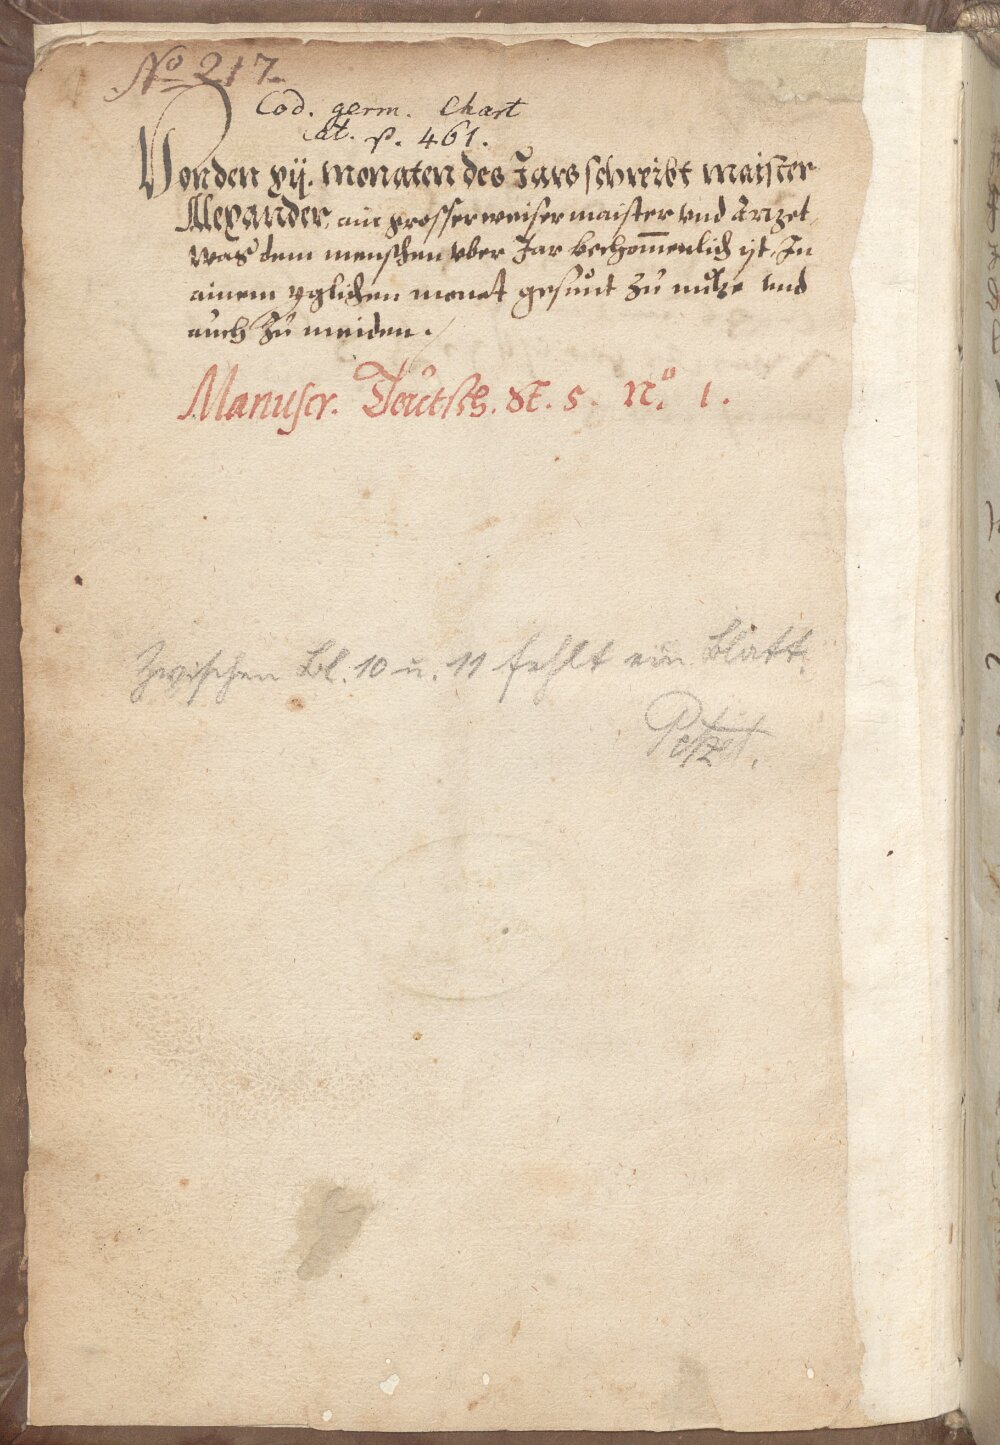 No 217.
Cod. germ. Chart
Cat. p. 461.
Von den xij. monaten des Jars schreibt maister
Alexander, ain grosser weiser maister vnd Arzet,
was dem menschen vber Jar bechom̄enlich ist, In
ainem yglichen monat gesunt zů nutze vnd
auch zů meiden.
Manuscr. Teütsch. St. 5. No. 1.
Zwischen Bl. 10 u. 11 fehlt ein Blatt.
Petzet.